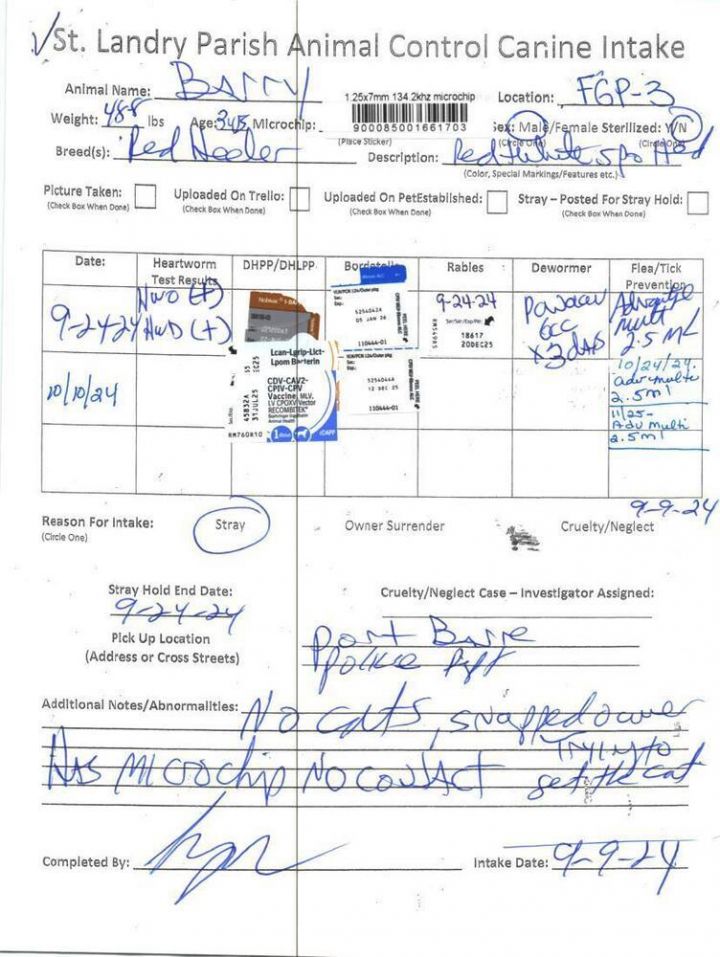 St. Landry Parish Animal Control Canine Intake
Animal Name: Barry
1.25x7mm 134.2khz microchip
900085001661703
Location: FGP-3
Weight: 48.8 lbs Age: Microchip: (Place Sticker)
Sex: Male/Female Sterilized: Y/N
(Circle One) (Circle One)
Breed(s): Red Heeler Description: Red + White spotted
(Color, Special Markings/Features etc.)
Picture Taken: Uploaded On Trello: Uploaded On PetEstablished: Stray – Posted For Stray Hold:
(Check Box When Done) (Check Box When Done) (Check Box When Done) (Check Box When Done)
Date: Heartworm Test Results DHPP/DHLPP Bordetella Rabies Dewormer Flea/Tick Prevention
9-24-24 HWD (+) 9-24-24
18617
20DEC25
6cc
x3 days
Advantage
multi
2.5 mL
Lcan-Lgrip-Lict-
Lpom Bacterin
CDV-CAV2-
CPIV-CPV
Vaccine, MLV,
LV CPOXV Vector
RECOMBITEK
45832A
31JUL25
5254042A
05 JAN 26
110444-01
5254044A
12 DEC 25
110444-01
10/10/24
10/24/24.
adv multi
2.5ml
11/25-
Adv multi
2.5ml
9-9-24
Reason For Intake: Stray Owner Surrender Cruelty/Neglect
(Circle One)
Stray Hold End Date: Cruelty/Neglect Case – Investigator Assigned:
9-24-24
Pick Up Location
(Address or Cross Streets)
Port Barre
Police
Additional Notes/Abnormalities: No cats, snapped
Trying to
Has Microchip No contact get the cat
Completed By: Intake Date: 9-9-24